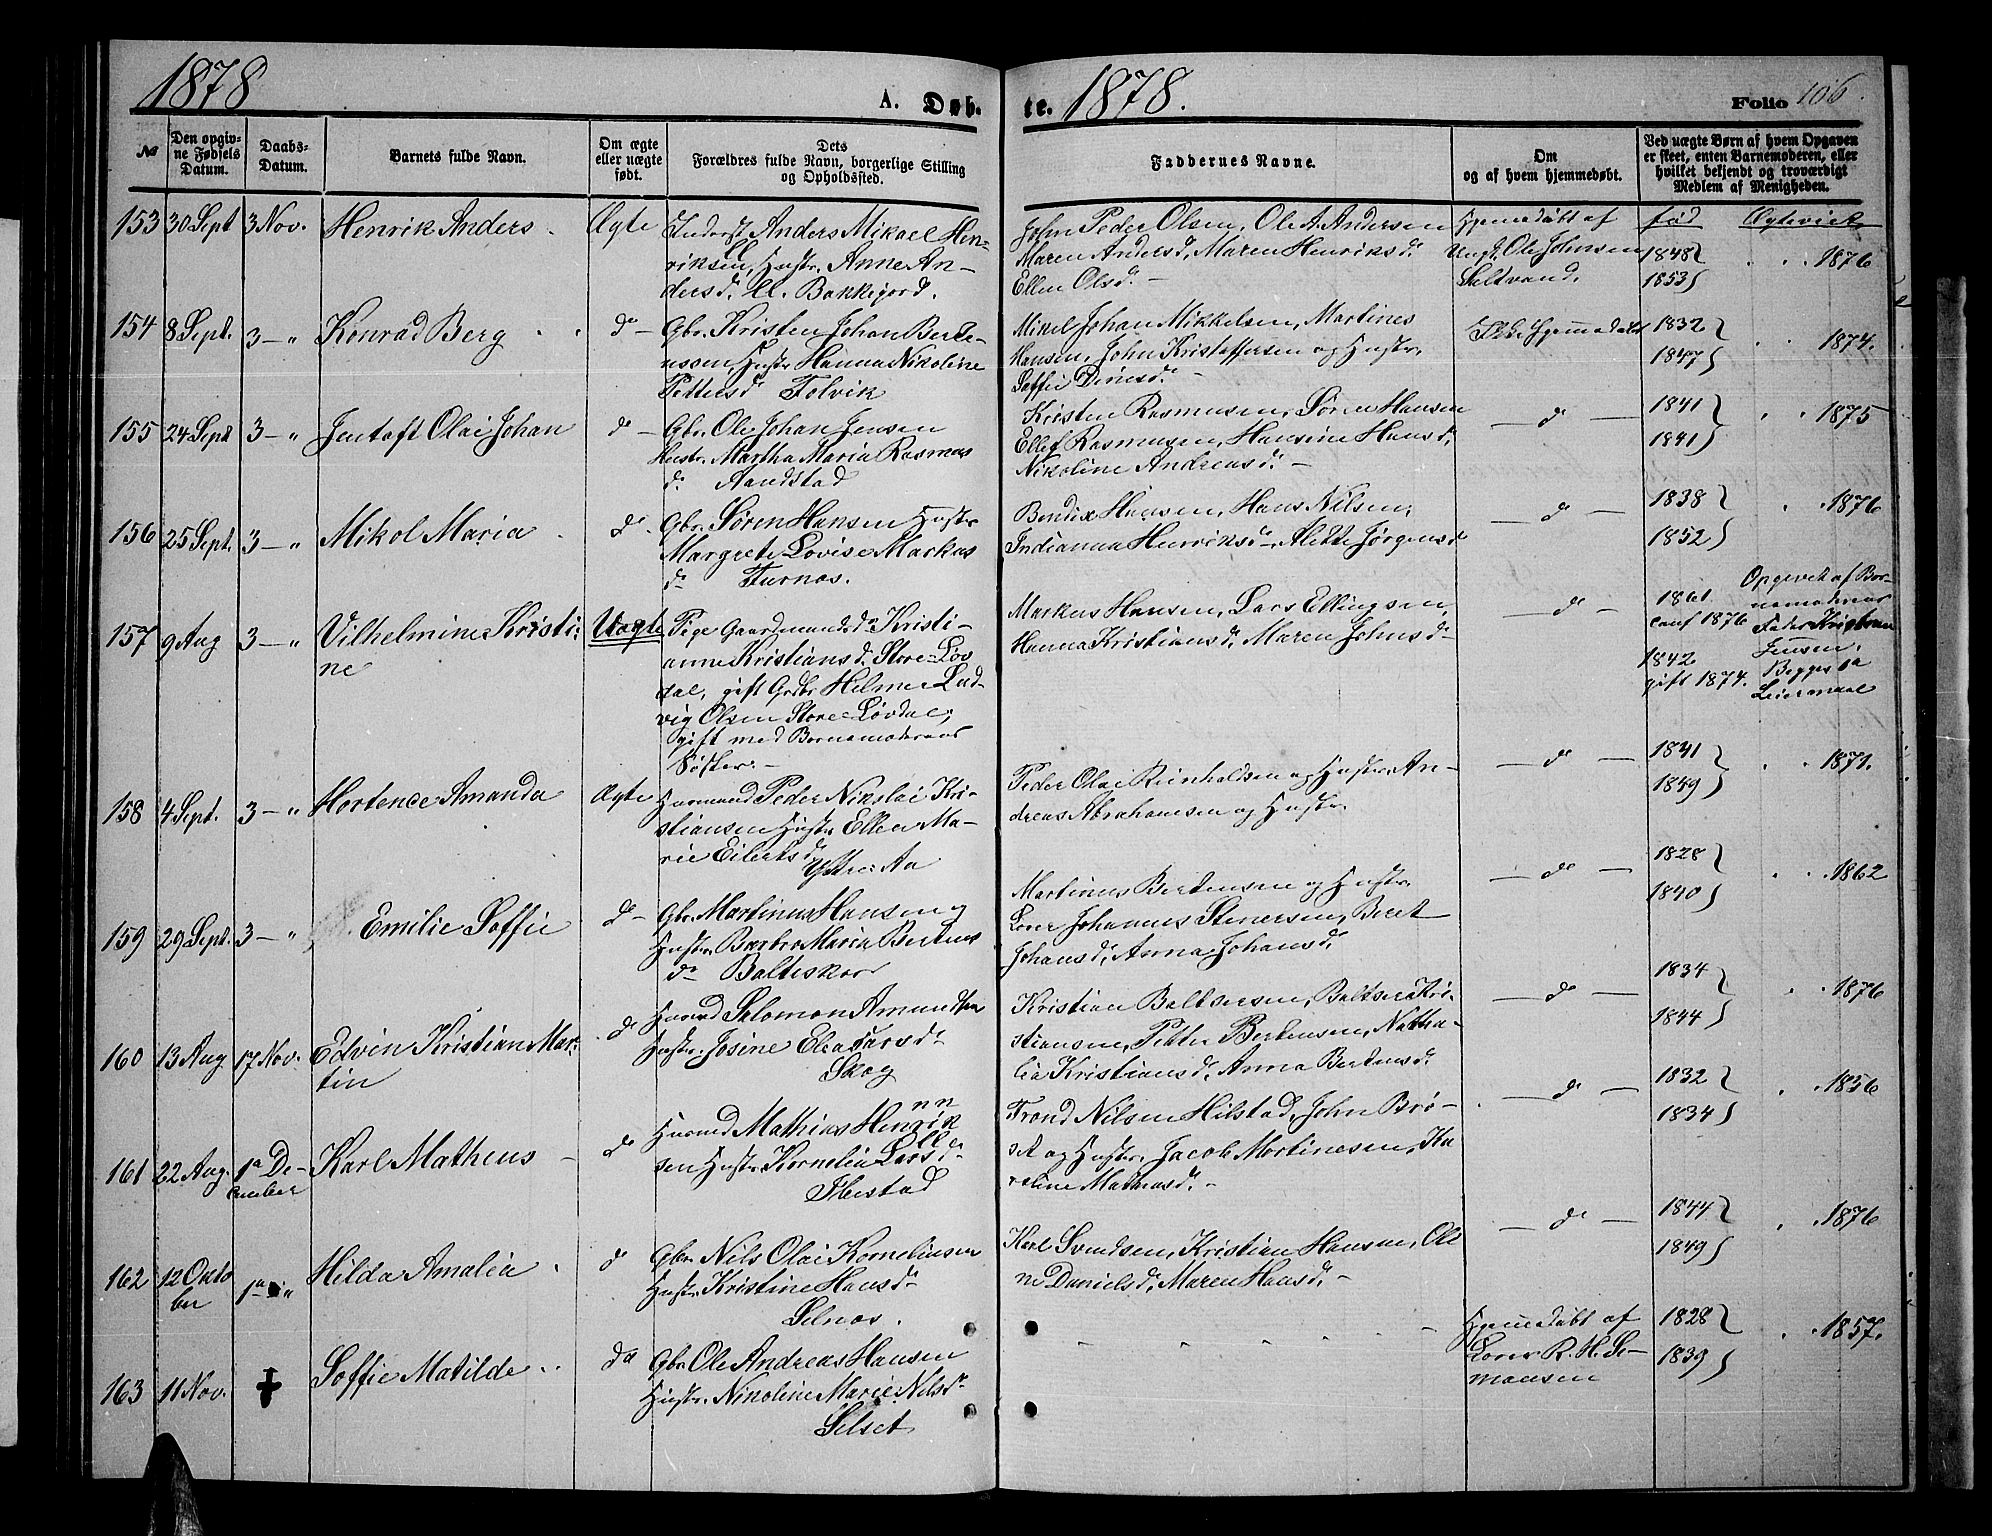 1878
A. Døb.
te. 1878.
Folio 106.
№
Den opgiv-
ne Fødsels
Datum.
Daabs-
Datum.
Barnets fulde Navn.
Om ægte
eller uægte
født.
Dets
Forældres fulde Navn, borgerlige Stilling
og Opholdssted.
Faddernes Navne.
Om
og af hvem hjemmedøbt.
Ved uægte Børn af hvem Opgaven
er skeet, enten Barnemoderen, eller
hvilket bekjendt og troværdigt
Medlem af Menigheden.
153 30 Sept 3 Nov. Henrik Anders. Ægte
Inderst Anders Mikael Hen-
riksen, Hustr. Anne An-
dersd. Bakkejord.
John Peder Olsen, Ole A. Andersen
Maren Andersd, Maren Henriksd.
Ellen Olsd. -
Hjemedøbt af
Ungk. Ole Johnsen
Saltvand.
fød Ægteviet
1848
1853
1876
154 8 Sept. 3 - " Konrad Berg d -
Gbr. Kristen Johan Berte-
ussen, Hustr. Hanna Nikoline
Pettersd Tolvik
Mikel Johan Mikkelsen, Martines
Hansen, John Kristoffersen og Hustr.
Soffie Dinesd. -
Ikke Hjemedøbt
1832
1847
1874.
155 24 Sept 3 - " Jentoft Olai Johan d -
Gbr. Ole Johan Jensen
Hustr. Martha Maria Rasmus
d. Aandstad
Kristen Rasmusen, Søren Hansen
Ellef Rasmusen, Hansine Hansd,
Nikoline Andreasd. -
- d -
1841
1841
1875
156 25 Sept. 3 - " Mikol Maria d.
Gbr. Søren Hansen Hustr
Margrete Lovise Markus
d. Furnes.
Bendix Hansen, Hans Nilsen,
Indianna Henriksd. Alette Jørgensd
- d -
1838
1852
1876
157 9 Aug 3 - " Vilhelmine Kristi-
ne
Uægte
Pige Gaardmandsd. Kristi-
anne Kristiansd. Store-Løv
dal, gift Grdbr Hilmer Lud-
vig Olsen Store Løvdal,
gift med Barnemoderens
Søster. -
Markus Hansen, Lars Ellingsen,
Hanna Kristiansd. Maren Johnsd -
- d -
1861
conf 1876
1842
gift 1874.
Opgivet af Bar-
nemoderens
Fader Kristian
Jensen.
Begges 1a
Leiermaal
158 4 Sept. 3 - " Hortence Amanda Ægte
Husmand Peder Nikolai Kri-
stiansen Hustr. Ellen Ma-
rie Eilertsd.
Ytre Aa
Peder Olai Reinholdsen og Hustr. An-
dreas Abrahamsen og Hustr.
- d -
1841
1849
1871.
159 29 Sept. 3 - " Emilie Soffie d -
Gbr. Martinus Hansen og
Hustr. Barbro Maria Bertens
d. Balteskar
Martinus Bertensen og Hustr.
Lærer Johannes Stenersen, Beret
Johansd, Anna Johansd.
- d -
1828
1840
1862
160 13 Aug 17 Nov. Edvin Kristian Mar-
tin
d
Husmd Salomon Amundsen
Hustr. Josine Eleasarsd.
Skog
Kristian Baltsersen, Baltser Kri-
stiansen, Petter Bertensen, Natha-
lia Kristiansd, Anna Bertensd.
- d -
1834
1844
1876
161 22 Aug. 1a De-
cember
Karl Matheus d
Husmd Mathias Henrik
sen Hustr. Kornelia Larsd -
Ibestad
Trond Nilsen Hilstad, John Brø-
set og Hustr. Jacob Mortinesen, Ka
roline Mathiasd. -
- d -
1832
1834
1856
162 12 Okto
ber
1a - " Hilda Amalia d
Gbr. Nils Olai Korneliusen
Hustr. Kristine Hansd.
Selnes.
Karl Svendsen, Kristian Hansen, Ole
ne Danielsd, Maren Hansd. -
- d -
1844
1849
1876
163 11 Nov. Soffie Matilde d
Gbr. Ole Andreas Hansen
Hustr. Nikoline Marie Nilsd.
Selset
Hjemedøbt af
Lærer R. H. Si-
monsen
1828
1839
1857.